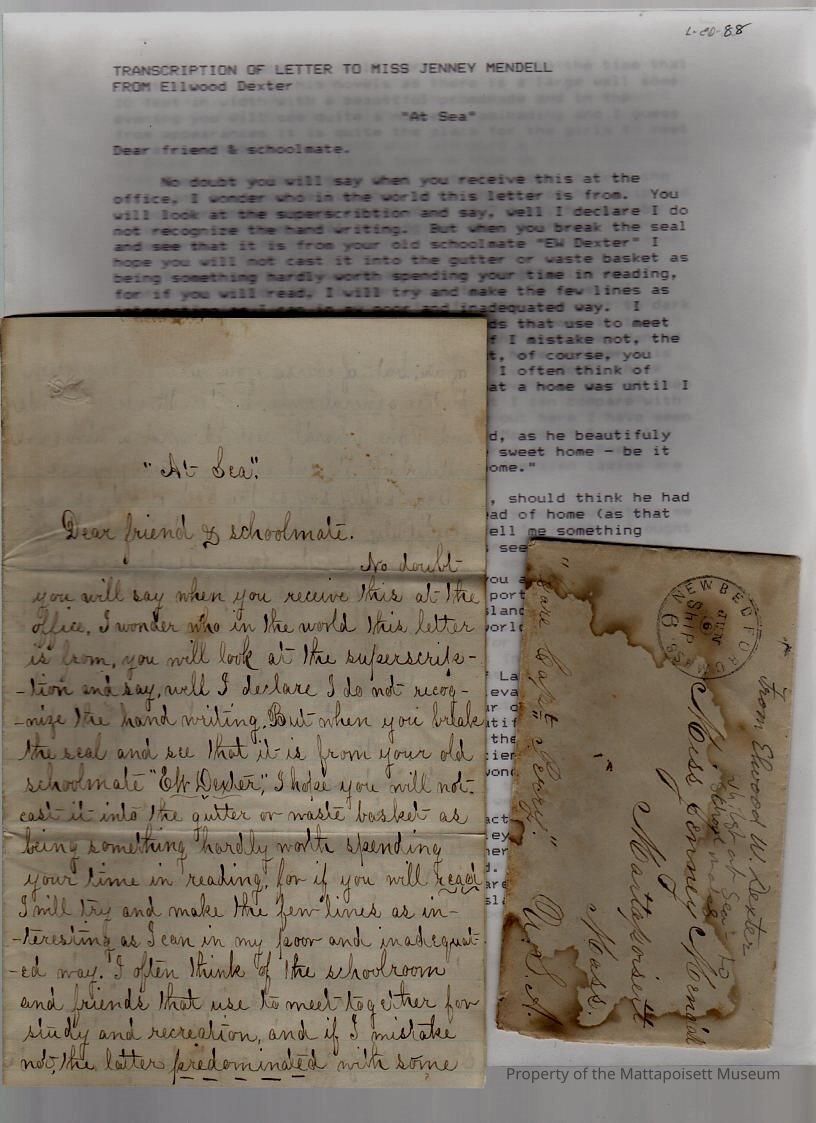 L-CD-88
TRANSCRIPTION OF LETTER TO MISS JENNEY MENDELL
FROM Ellwood Dexter
"At Sea"
Dear friend & schoolmate.
No doubt you will say when you receive this at the
office, I wonder who in the world this letter is from. You
will look at the superscribtion and say, well I declare I do
not recognize the hand writing. But when you break the seal
and see that it is from your old schoolmate "EW Dexter" I
hope you will not cast it into the gutter or waste basket as
being something hardly worth spending your time in reading,
for if you will read, I will try and make the few lines as
interesting as I can in my poor and inadequated way. I
ds that use to meet
f I mistake not, the
t, of course, you
I often think of
at a home was until I
d, as he beautifuly
sweet home - be it
ome."
, should think he had
ad of home (as that
ell me something
see
"At Sea".
Dear friend & schoolmate.
No doubt
you will say when you receive this at the
office, I wonder who in the world this letter
is from, you will look at the superscrip-
-tion and say, well I declare I do not recog-
-nize the hand writing. But when you break
the seal and see that it is from your old
schoolmate "EW Dexter", I hope you will not
cast it into the gutter or waste basket as
being something hardly worth spending
your time in reading, for if you will read
I will try and make the few lines as in-
-teresting as I can in my poor and inadequat-
-ed way. I often think of the schoolroom
and friends that use to meet together for
study and recreation, and if I mistake
not, the latter predominated with some
NEW BEDFORD MASS.
JUN
6
SHIP
6
From Elwood W. Dexter
whilst at Sea to
School mate
Miss Jenney Mendall
Mattapoisett
Mass.
U.S.A.
"Care Capt
Property of the Mattapoisett Museum